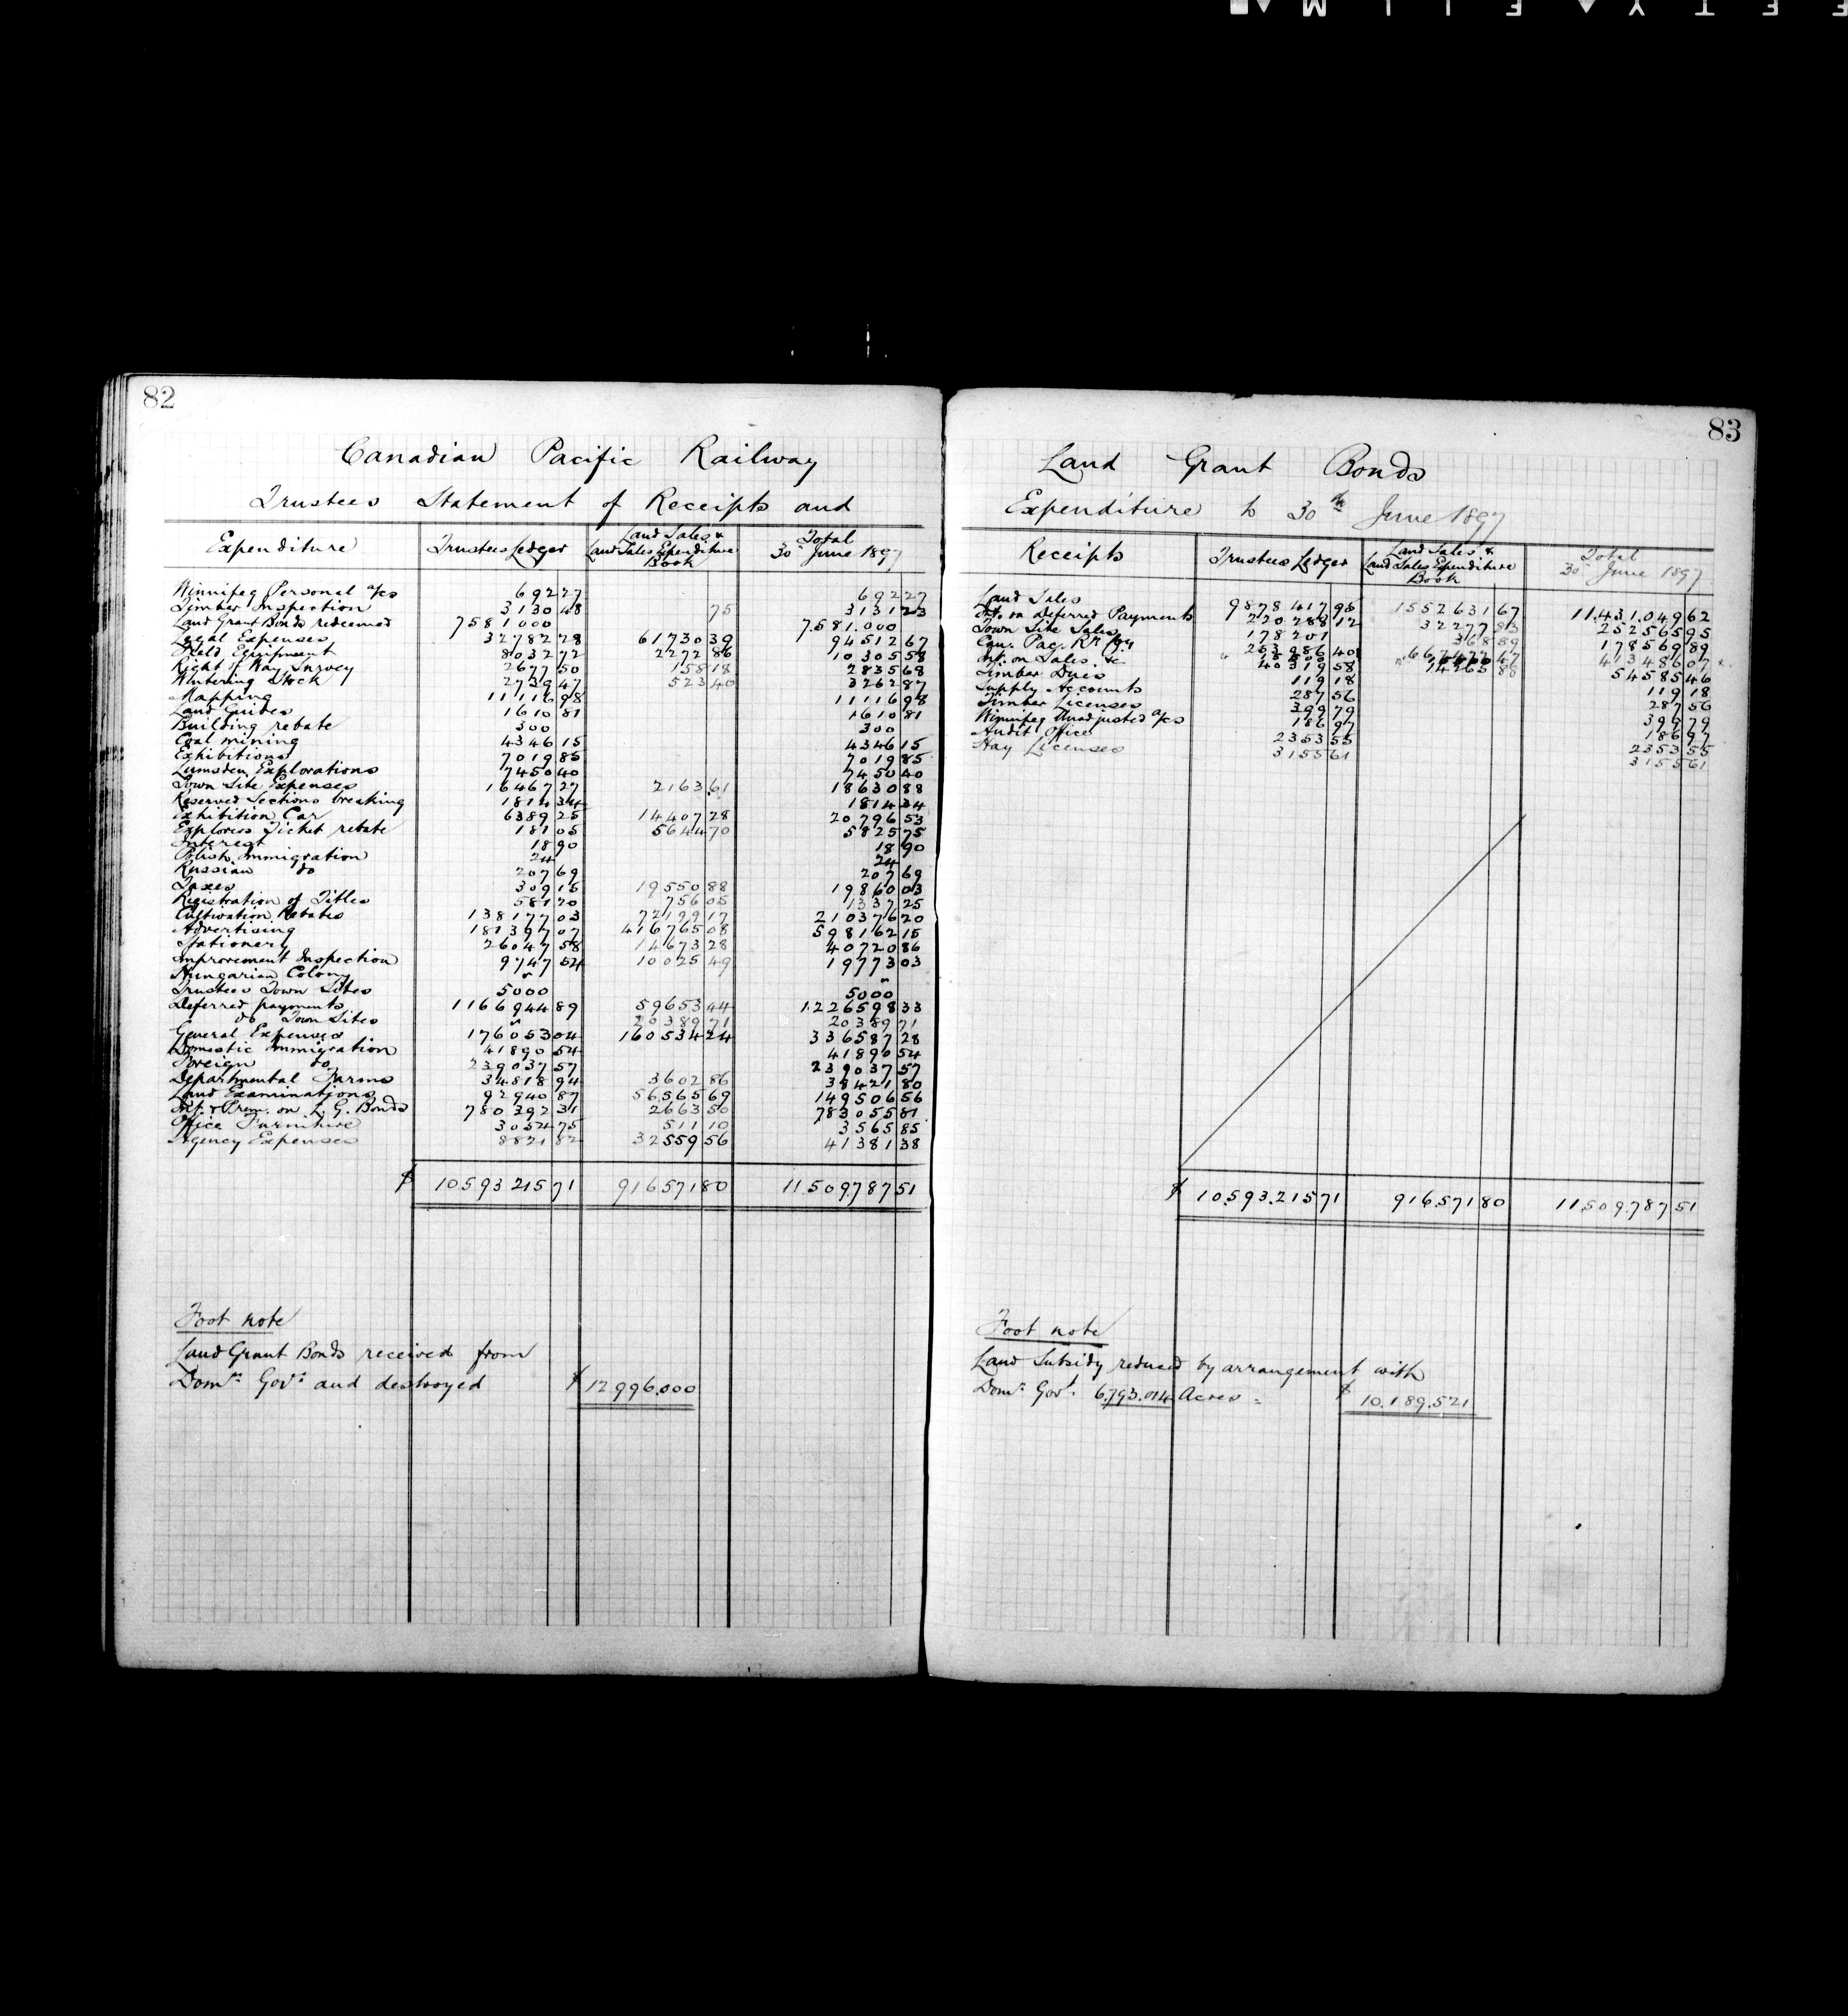 82
Canadian Pacific Railway
Trustees Statement of Receipts and
Expenditure Trustees Ledger Land Sales & Land Sales Expenditure Book Total 30th June 1897
Winnipeg Personal a/cs 692 27 692 27
Timber Inspection 3130 48 75 3131 23
Land Grant Bonds redeemed 7581000 7.581.000
Legal Expenses 32782 28 61730 39 94512 67
Field Equipment 8032 72 2272 86 10305 58
Right of Way Survey 2677 50 158 18 2835 68
Wintering Stock 2739 47 523 40 3262 87
Mapping 11116 98 11116 98
Land Guides 1610 81 1610 81
Building rebate 300 300
Coal mining 4346 15 4346 15
Exhibitions 7019 85 7019 85
Lumsden Explorations 7450 40 7450 40
Town Site Expenses 16467 27 2163 61 18630 88
Reserved Sections breaking 1814 34 1814 34
Exhibition Car 6389 25 14407 28 20796 53
Explorers Ticket rebate 181 05 5644 70 5825 75
Interest 18 90 18 90
Polish Immigration 24 24
Russian do 207 69 207 69
Taxes 309 15 19550 88 19860 03
Registration of Titles 581 20 756 05 1337 25
Cultivation Rebates 138177 03 72199 17 210376 20
Advertising 181397 07 416765 08 598162 15
Stationery 26047 58 14673 28 40720 86
Improvement Inspection 9747 54 10025 49 19773 03
Hungarian Colony " "
Trustees Town Sites 5000 5000
Deferred payments 1166944 89 59653 44 1.226598 33
do Town Sites " 20389 71 20389 71
General Expenses 176053 04 160534 24 336587 28
Domestic Immigration 41890 54 41890 54
Foreign do 239037 57 239037 57
Departmental Farms 34818 94 3602 86 38421 80
Land Examinations 92940 87 56565 69 149506 56
Int. & Prem. on L. G. Bonds 780392 31 2663 50 783055 81
Office Furniture 3054 75 511 10 3565 85
Agency Expenses 8821 82 32559 56 41381 38
$ 10593215 71 916571 80 11.509.787 51
Foot note
Land Grant Bonds received from
Domn. Govt. and destroyed $ 12996.000
83
Land Grant Bonds
Expenditure to 30th June 1897
Receipts Trustees Ledger Land Sales & Land Sales Expenditure Book Total 30th June 1897
Land Sales 9878417 95 1552631 67 11.431.049 62
Int. on Deferred Payments 220288 12 32277 83 252565 95
Town Site Sales 178201 368 89 178569 89
Can. Pac. Ry Coy 253986 40 667472 47 413486 07
Int. on Sales &c 40319 58 14265 88 54585 46
Timber Dues 119 18 119 18
Supply Accounts 287 56 287 56
Timber Licenses 399 79 399 79
Winnipeg Unadjusted a/cs 186 97 186 97
Audit Office 2353 55 2353 55
Hay Licenses 3155 61 3155 61
$ 10.593.215 71 916.571 80 11.509.787 51
Foot note
Land Subsidy reduced by arrangement with
Domn. Govt. 6.793.014 Acres = $ 10.189.521